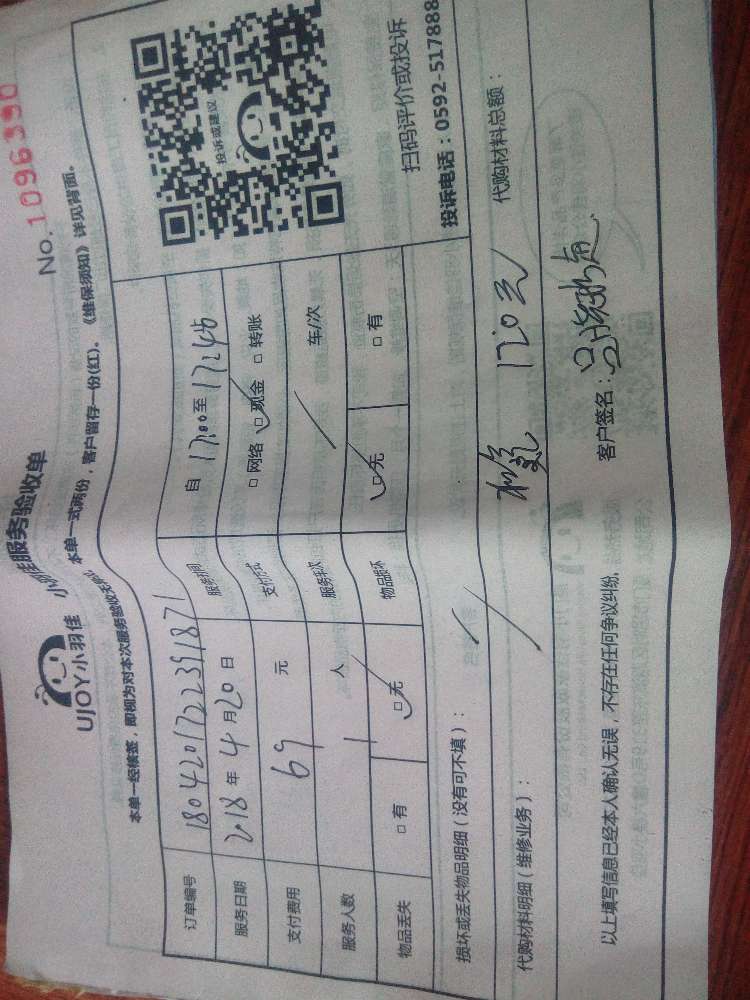 No. 1096390
UJOY小羽佳 小羽佳服务验收单
本单一经核签，即视为对本次服务验收无异议 本单一式两份，客户留存一份(红)。《维保须知》详见背面。
订单编号 1804201722391871
服务日期 2018 年 4 月 20 日 服务时间 自 17:00 至 17:45
支付费用 69 元 支付方式 □ 网络 □ 现金 □ 转账
服务人数 1 人 服务车次 / 车/次
物品丢失 □ 有 □ 无 物品损坏 □ 无 □ 有
投诉或建议
扫码评价或投诉
投诉电话：0592-517888
损坏或丢失物品明细（没有可不填）：
代购材料明细（维修业务）： 代购材料总额：
以上填写信息已经本人确认无误，不存在任何争议纠纷。 客户签名：